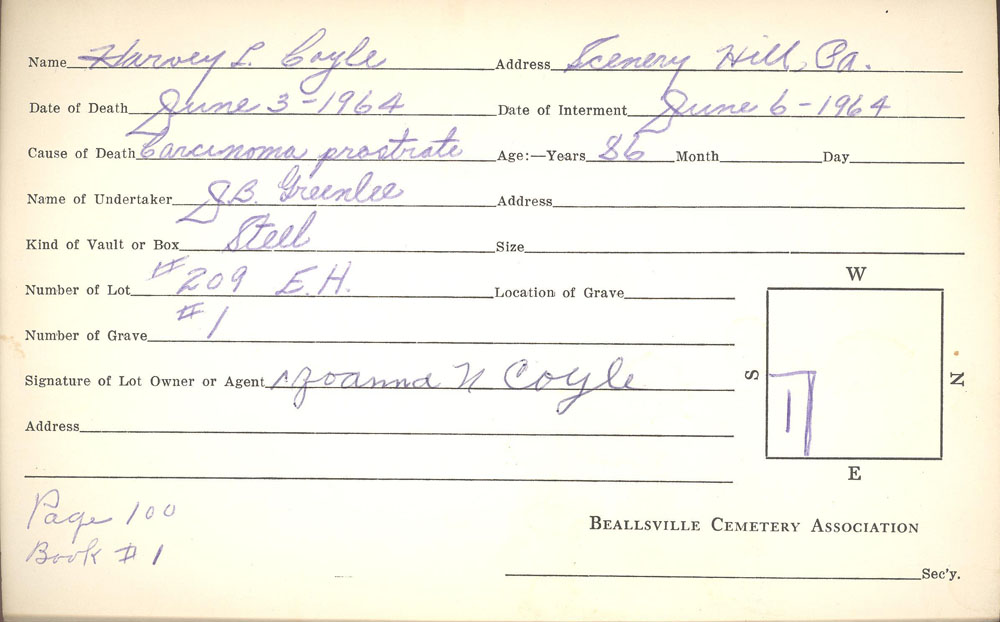 Name Harvey L. Coyle Address Scenery Hill, Pa.
Date of Death June 3-1964 Date of Interment June 6-1964
Cause of Death Carcinoma prostrate Age:—Years 86 Month Day
Name of Undertaker J.B. Greenlee Address
Kind of Vault or Box Steel Size
Number of Lot #209 E.H. Location of Grave
Number of Grave #1
Signature of Lot Owner or Agent Joanna N Coyle
Address
W
S
N
1
E
Page 100
Book #1
BEALLSVILLE CEMETERY ASSOCIATION
Sec'y.